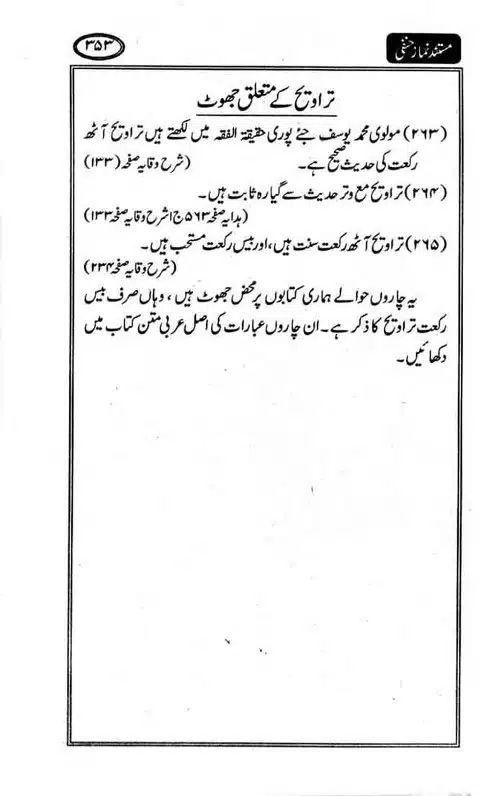 مستند نماز حنفی
۳۵۳
تراویح کے متعلق جھوٹ
(۲۶۳) مولوی محمد یوسف جئے پوری حقیقۃ الفقہ میں لکھتے ہیں تراویح آٹھ
رکعت کی حدیث صحیح ہے۔ (شرح وقایہ صفحہ ۱۳۳)
(۲۶۴) تراویح مع وتر حدیث سے گیارہ ثابت ہیں۔
(ہدایہ صفحہ ۵۶۳ ج ا شرح وقایہ صفحہ ۱۳۳)
(۲۶۵) تراویح آٹھ رکعت سنت ہیں، اور بیس رکعت مستحب ہیں۔
(شرح وقایہ صفحہ ۲۳۴)
یہ چاروں حوالے ہماری کتابوں پر محض جھوٹ ہیں، وہاں صرف بیس
رکعت تراویح کا ذکر ہے۔ ان چاروں عبارات کی اصل عربی متن کتاب میں
دکھائیں۔